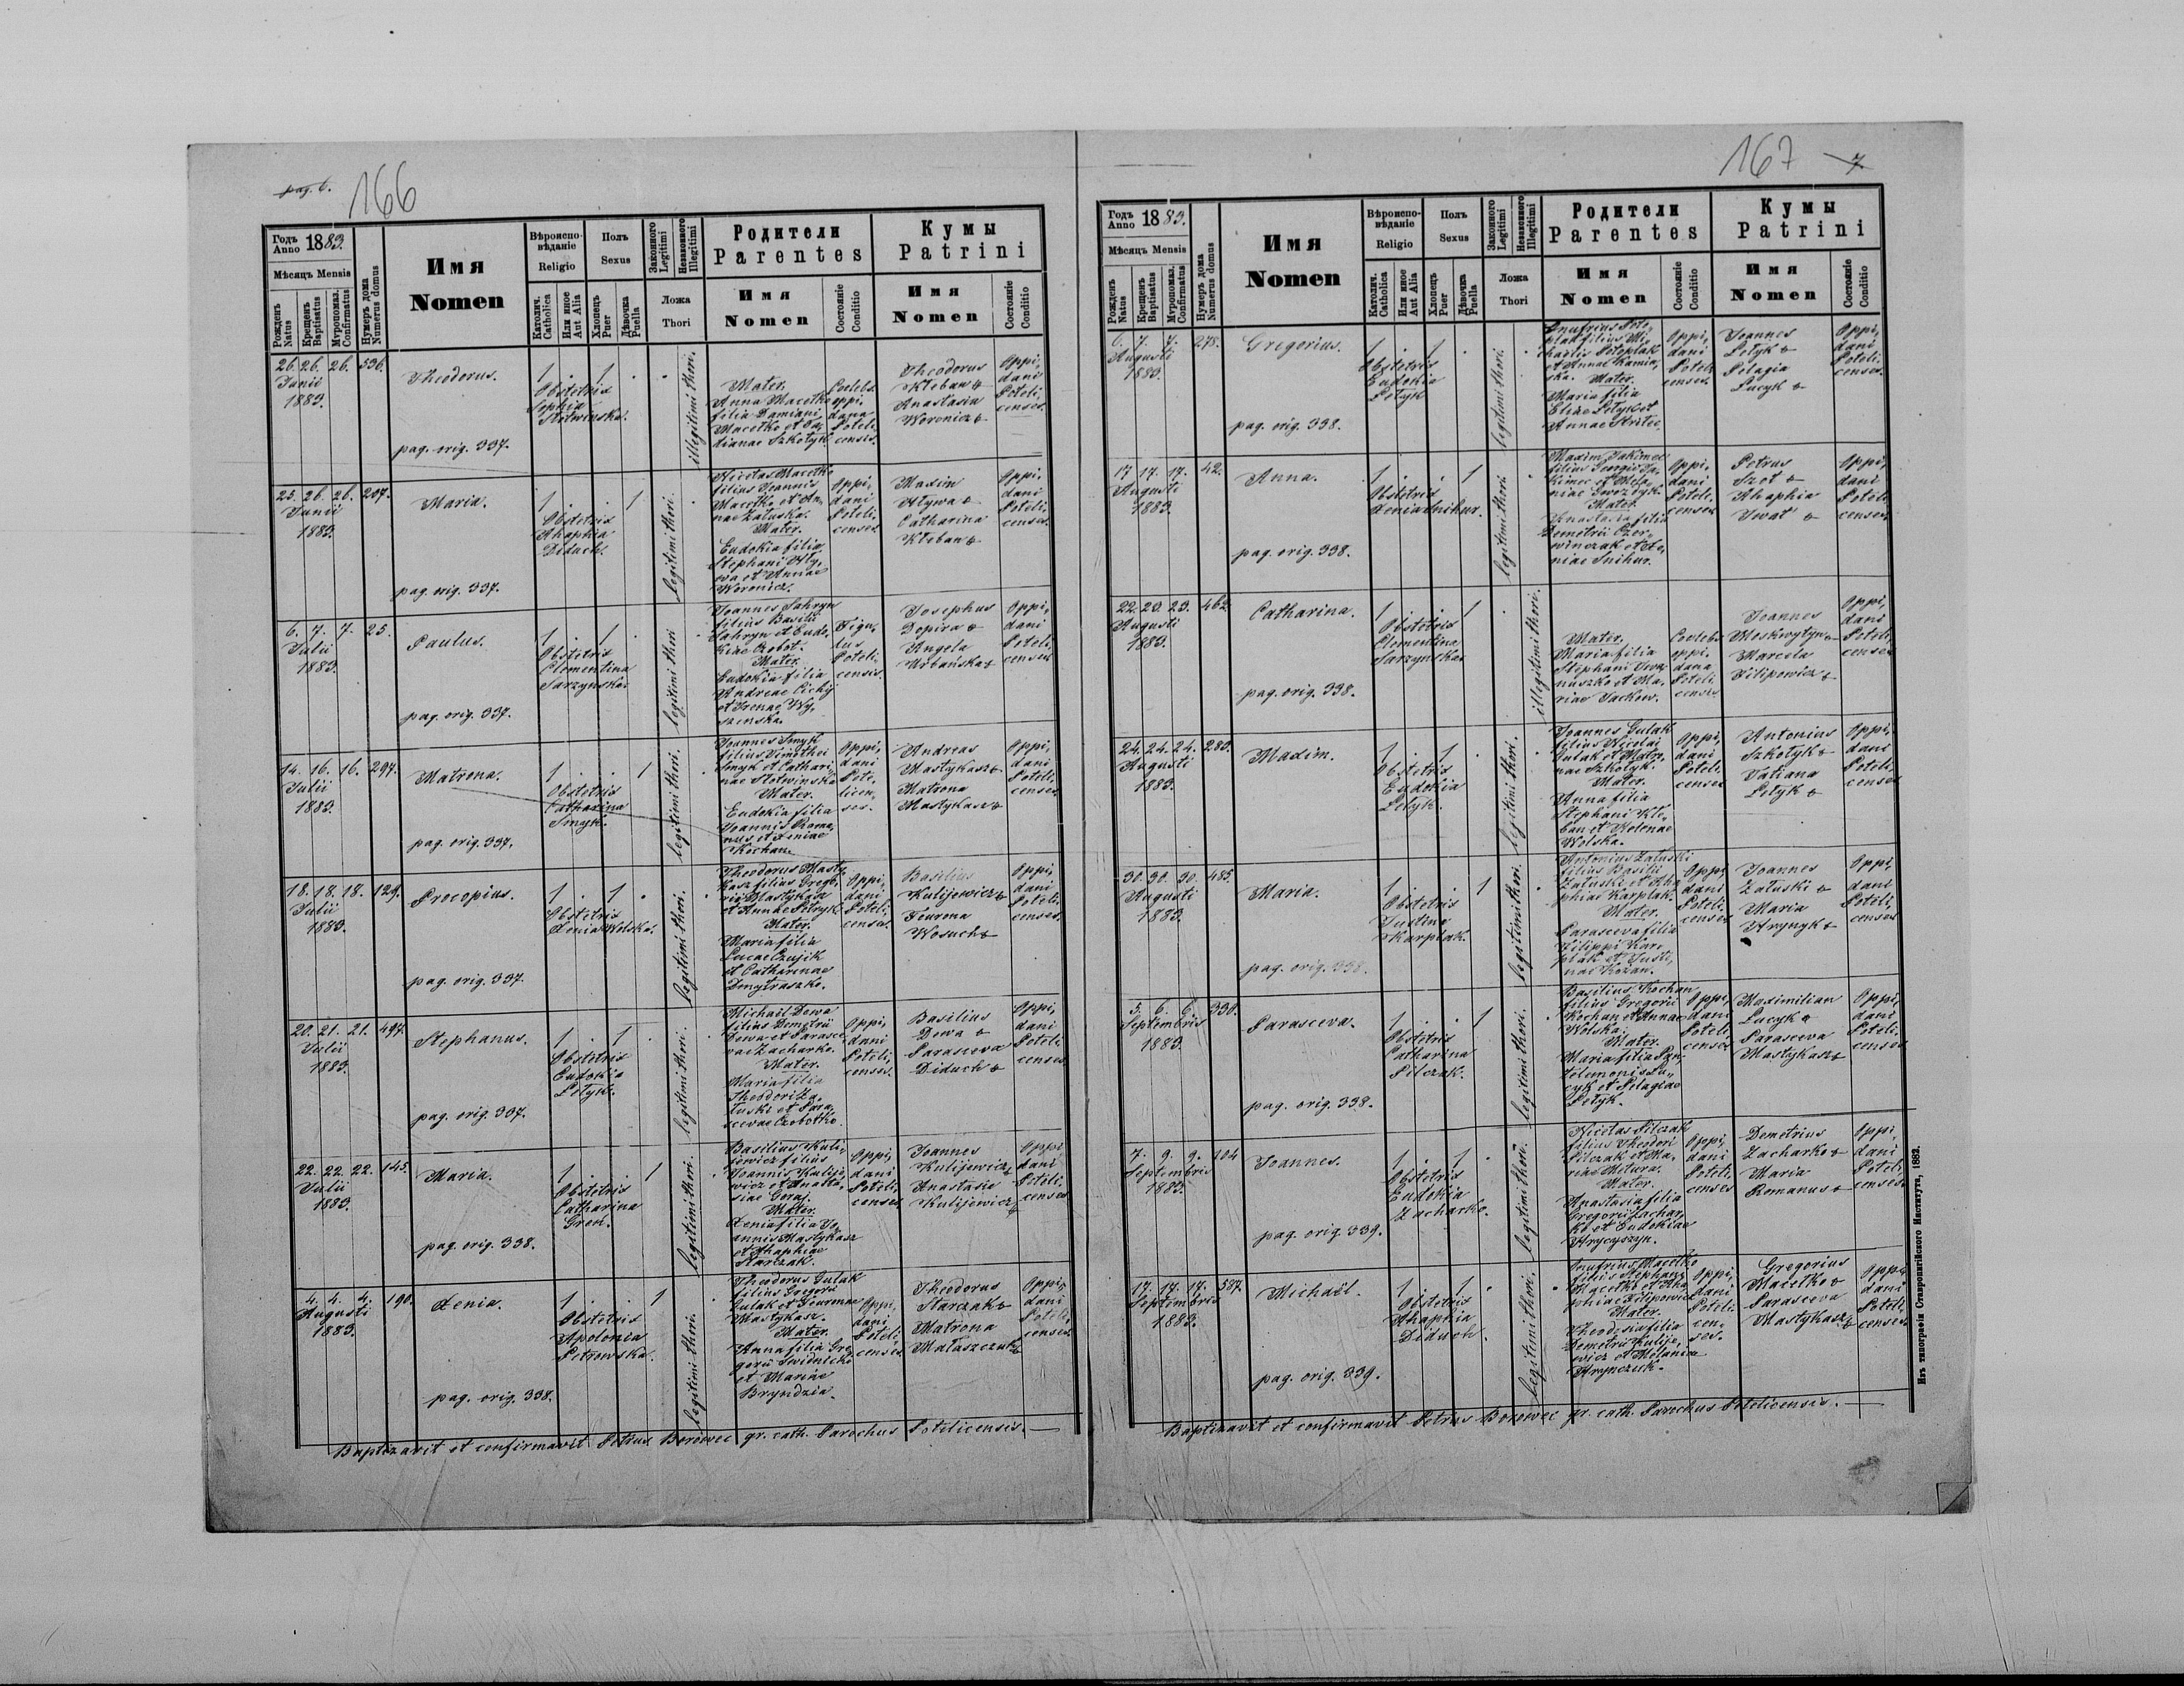 pag. 6.
166
Годъ
Anno 1883.
Мѣсяцъ Mensis
Рожденъ
Natus
Крещенъ
Baptisatus
Муропомаз.
Confirmatus
Нумеръ дома
Numerus domus
Имя
Nomen
Вѣроиспо-
вѣданіе
Religio
Католич.
Catholica
Или иное
Aut Alia
Полъ
Sexus
Хлопецъ
Puer
Дѣвочка
Puella
Законного
Legitimi
Незаконного
Illegitimi
Ложа
Thori
Родители
Parentes
Имя
Nomen
Состояніе
Conditio
Кумы
Patrini
Имя
Nomen
Состояніе
Conditio
26. 26. 26. 536.
Junii
1883.
Theodorus.
pag. orig. 337.
1 . 1 . .
Obstetrix
Sophia
Stotwinska.
illegitimi thori.
Mater.
Anna Macetko
filia Damiani
Macetko et Ju-
lianae Szkotyk
Coelebs
oppi-
dana
Poteli-
censis.
Theodorus
Kteban &
Anastasia
Woronicz &
Oppi-
dani
Poteli-
censes.
25. 26. 26. 207.
Junii
1883.
Maria.
pag. orig. 337.
1 . . 1 .
Obstetrix
Ahaphia
Diduch.
legitimi thori.
Nicetas Macetko
filius Joannis
Macetko et An-
nae Zatuska.
Mater.
Eudokia filia
Stephani Hty-
wa et Annae
Woronicz.
Oppi-
dani
Poteli-
censes.
Maxim
Htywa &
Catharina
Kteban &
Oppi-
dani
Poteli-
censes.
6. 7. 7. 25.
Julii
1883.
Paulus.
pag. orig. 337.
1 . 1 .
Obstetrix
Clementina
Sarzynska.
legitimi thori
Joannes Sahryn
filius Basilii
Sahryn et Eudo-
kiae Czobot.
Mater.
Eudokia filia
Andreae Cichy
et Irenae Wy-
szenska.
Figu-
lus
Poteli-
censis.
Josephus
Dopira &
Angela
Urbańska &
Oppi-
dani
Poteli-
censes
14. 16. 16. 297.
Julii
1883.
Matrona.
pag. orig. 337.
1 . . 1 .
Obstetrix
Catharina
Smyk.
legitimi thori.
Joannes Smyk
filius Timothei
Smyk et Cathari-
nae Stotwinska
Mater.
Eudokia filia
Joannis Roma-
nus et Xeniae
Kochan.
Oppi-
dani
Pote-
licen-
ses.
Andreas
Mastykasz &
Matrona
Mastykasz &
Oppi-
dani
Poteli-
censes
18. 18. 18. 129.
Julii
1883.
Procopius.
pag. orig. 337.
1 . 1 . .
Obstetrix
Xenia Wolska.
legitimi thori.
Theodorus Masty-
kasz filius Grego-
rii Mastykasz
et Annae Petryk.
Mater.
Maria filia
Lucae Czujik
et Catharinae
Dmytraszko.
Oppi-
dani
Poteli-
censes.
Basilius
Kulijewicz &
Feurona
Wosuch &
Oppi-
dani
Poteli-
censes.
20. 21. 21. 497.
Julii
1883.
Stephanus.
pag. orig. 337.
1 . 1 .
Obstetrix
Eudokia
Petyk.
legitimi thori.
Michael Dewa
filius Demetrii
Dewa et Parasce-
vae Zacharko.
Mater.
Maria filia
Theodori Za-
tuski et Para-
scevae Czobotko.
Oppi-
dani
Poteli-
censes.
Basilius
Dewa &
Parasceva
Diduch &
Oppi-
dani
Poteli-
censes.
22. 22. 22. 145.
Julii
1883.
Maria.
pag. orig. 338.
1 . . 1 .
Obstetrix
Catharina
Gren.
legitimi thori.
Basilius Kuli-
jewicz filius
Joannis Kulije-
wicz et Anasta-
siae Geraj.
Mater.
Xenia filia Jo-
annis Mastykasz
et Ahaphiae
Starczak.
Oppi-
dani
Poteli-
censes.
Joannes
Kulijewicz &
Anastasia
Kulijewicz &
Oppi-
dani
Poteli-
censes
4. 4. 4. 190.
Augusti
1883.
Xenia.
pag. orig. 338.
1 . . 1 .
Obstetrix
Apolonia
Petrowska.
legitimi thori.
Theodorus Gulak
filius Gregorii
Gulak et Feuronae
Mastykasz.
Mater.
Anna filia Gre-
gorii Swidnicki
et Mariae
Bryndzia.
Oppi-
dani
Poteli-
censes.
Theodorus
Starczak &
Matrona
Mataszczuk &
Oppi-
dani
Poteli-
censes.
Baptizavit et confirmavit Petrus Borowec gr. cath. Parochus Potelicensis.
167
7
Годъ
Anno 1883.
Мѣсяцъ Mensis
Рожденъ
Natus
Крещенъ
Baptisatus
Муропомаз.
Confirmatus
Нумеръ дома
Numerus domus
Имя
Nomen
Вѣроиспо-
вѣданіе
Religio
Католич.
Catholica
Или иное
Aut Alia
Полъ
Sexus
Хлопецъ
Puer
Дѣвочка
Puella
Законного
Legitimi
Незаконного
Illegitimi
Ложа
Thori
Родители
Parentes
Имя
Nomen
Состояніе
Conditio
Кумы
Patrini
Имя
Nomen
Состояніе
Conditio
6. 7. 7. 275.
Augusti
1883.
Gregorius.
pag. orig. 338.
1 . 1 . .
Obstetrix
Eudokia
Petyk
legitimi thori.
Onufrius Poto-
plak filius Mi-
chaelis Potoplak
et Annae Kamin-
ska. Mater.
Maria filia
Eliae Petyk et
Annae
Oppi-
dani
Poteli-
censes.
Joannes
Petyk &
Pelagia
Lucyk &
Oppi-
dani
Poteli-
censes.
17. 17. 17. 42.
Augusti
1883.
Anna.
pag. orig. 338.
1 . . 1 .
Obstetrix
Xenia Snihur.
legitimi thori.
Maxim Jakimec
filius Georgii Ja-
kimec et Mela-
niae Gwozdyk.
Mater.
Anastasia filia
Demetrii Czer-
winczak et Xe-
niae Snihur.
Oppi-
dani
Poteli-
censes
Petrus
Szot &
Ahaphia
Iwat &
Oppi-
dani
Poteli-
censes
22. 23. 23. 462.
Augusti
1883.
Catharina.
pag. orig. 338.
1 . . 1 .
Obstetrix
Clementina
Sarzynska
illegitimi thori.
Mater.
Maria filia
Stephani Iwa-
nuszko et Ma-
riae Jackow.
Coelebs
oppi-
dana
Poteli-
censis
Joannes
Moskwytyn &
Marcela
Filipowicz &
Oppi-
dani
Poteli-
censes
24. 24. 24. 280.
Augusti
1883.
Maxim.
pag. orig. 338.
1 . 1 . .
Obstetrix
Eudokia
Petyk.
legitimi thori.
Joannes Gulak
filius Nicolai
Gulak et Matro-
nae Szkotyk.
Mater.
Anna filia
Stephani Kte-
ban et Helenae
Wolska.
Oppi-
dani
Poteli-
censes
Antonius
Szkotyk &
Tatiana
Petyk &
Oppi-
dani
Poteli-
censes
30. 30. 30. 485.
Augusti
1883.
Maria.
pag. orig. 338.
1 . . 1 .
Obstetrix
Justina
Karplak.
legitimi thori.
Antonius Zatuski
filius Basilii
Zatuski et Aha-
phiae Karplak.
Mater.
Parasceva filia
Filippi Kar-
plak et Justi-
nae Kozan.
Oppi-
dani
Poteli-
censes
Joannes
Zatuski &
Maria
Hrynyk &
Oppi-
dani
Poteli-
censes
5. 6. 6. 330.
Septembris
1883.
Parasceva.
pag. orig. 338.
1 . . 1 .
Obstetrix
Catharina
Pilczak.
legitimi thori.
Basilius Kochan
filius Gregorii
Kochan et Annae
Wolska.
Mater.
Maria filia Pan-
telemonis Lu-
cyk et Pelagiae
Petyk.
Oppi-
dani
Poteli-
censes
Maximilian
Lucyk &
Parasceva
Mastykasz &
Oppi-
dani
Poteli-
censes
7. 9. 9. 104
Septembris
1883.
Joannes.
pag. orig. 339.
1 . 1 .
Obstetrix
Eudokia
Zacharko.
legitimi thori.
Nicetas Pilczak
filius Theodori
Pilczak et Ma-
riae Metura.
Mater.
Anastasia filia
Gregorii Zachar-
ko et Eudokiae
Hrycyszyn.
Oppi-
dani
Poteli-
censes
Demetrius
Zacharko &
Maria
Romanus &
Oppi-
dani
Poteli-
censes.
17. 17. 17. 587.
Septembris
1883.
Michaël.
pag. orig. 339.
1 . 1 . .
Obstetrix
Ahaphia
Diduch.
legitimi thori.
Onufrius Macetko
filius Stephani
Macetko et Aha-
phiae Filipowicz
Mater.
Theodosia filia
Demetrii Kulije-
wicz et Melaniae
Hrynczuk.
Oppi-
dani
Poteli-
cen-
ses.
Gregorius
Macetko &
Parasceva
Mastykasz &
Oppi-
dani
Poteli-
censes
Baptizavit et confirmavit Petrus Borowec gr. cath. Parochus Potelicensis.
Изъ типографіи Ставропигійского Института, 1882.